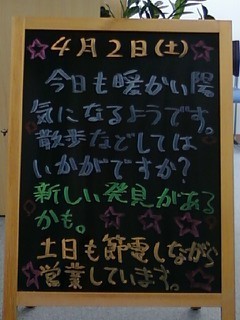 4月2日(土)
今日も暖かい陽
気になるようです。
散歩などしては
いかがですか?
新しい発見がある
かも。
土日も節電しながら
営業しています。